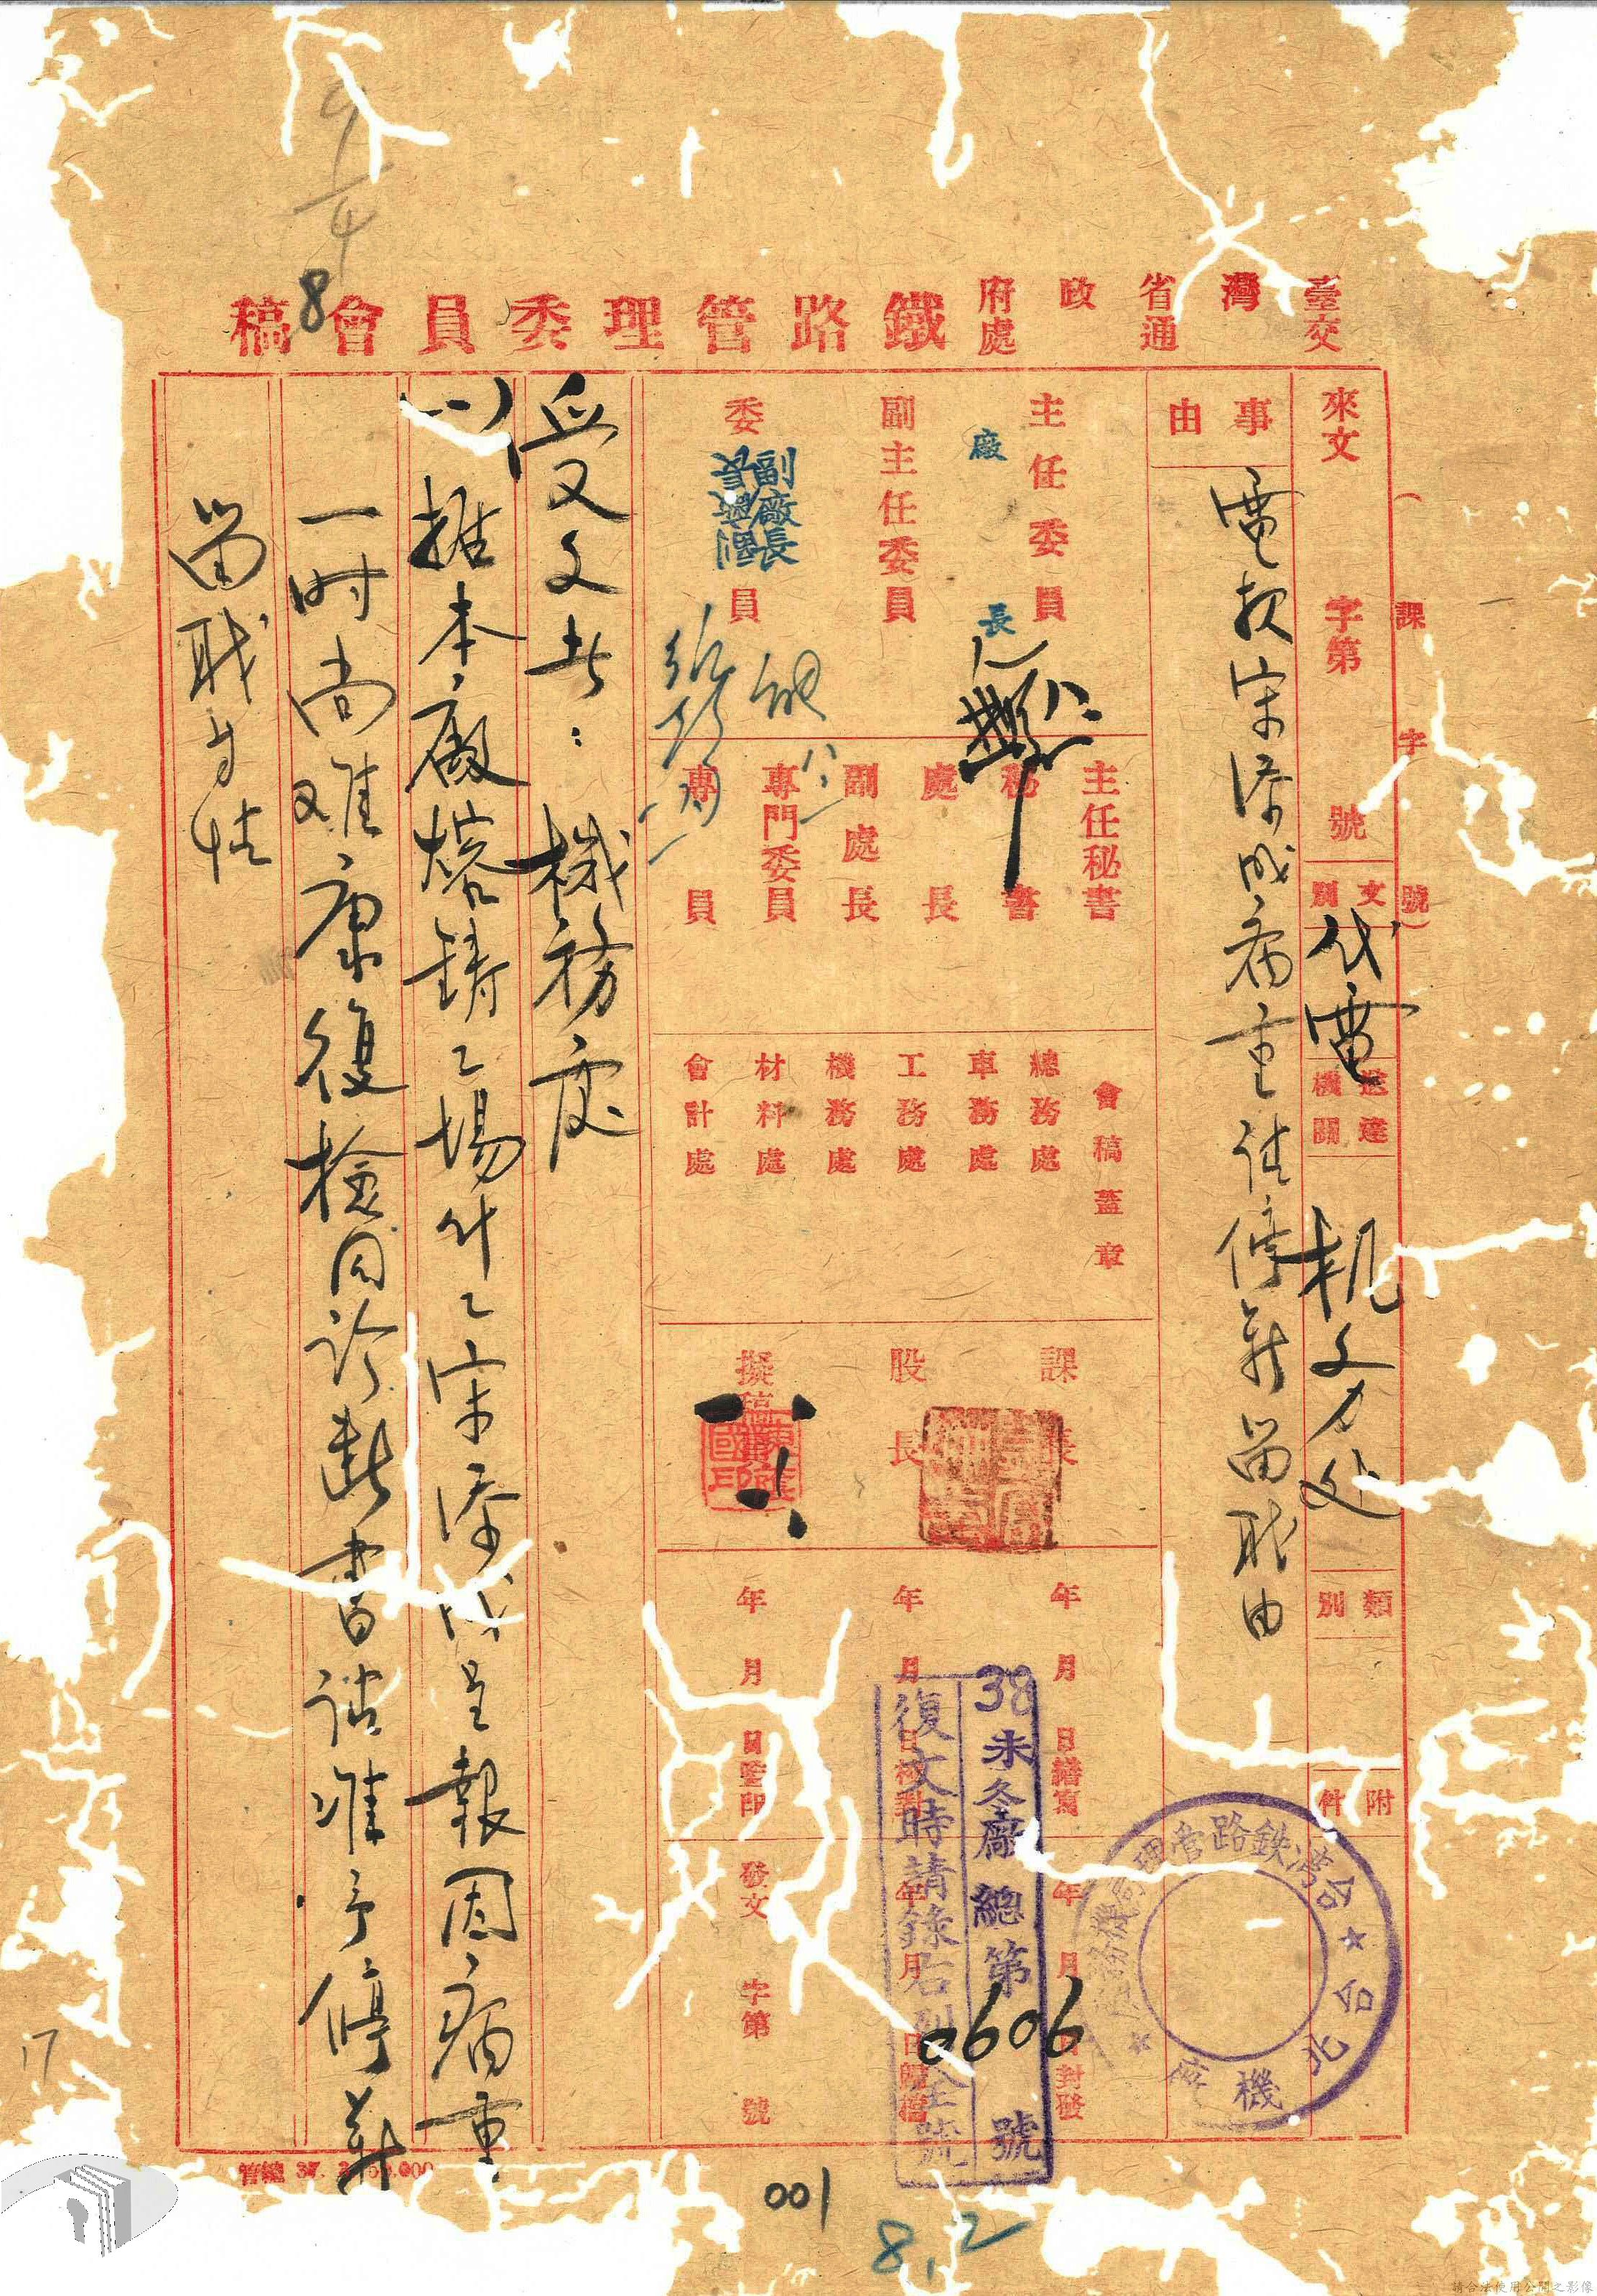 臺灣省政府
交通處
鐵路管理委員會稿
來文
字第
號
(課字號)
文別
代電
送達機關
机文力处
類別
附件
事由
電報宋添成病重請停薪留职由
主任委員
廠長
副主任委員
委員
副廠長
主任秘書
秘書
處長
副處長
專門委員
專員
會稿蓋章
總務處
車務處
工務處
機務處
材料處
會計處
課長
股長
擬稿
年月日繕寫
年月日校對
年月日監印
年月日封發
年月日歸檔
發文
字第
號
38未冬廠總第0606號
復文時請錄右列全號
台灣鉄路管理
台北機廠
受文者：機務處
(一)據本廠熔鑄工場什工宋添成呈報因病重
一时尚难康復檢同診断書請准予停薪
留职等情
管總 37.
001
8,2
8
9/4
17
請合法使用公開之影像